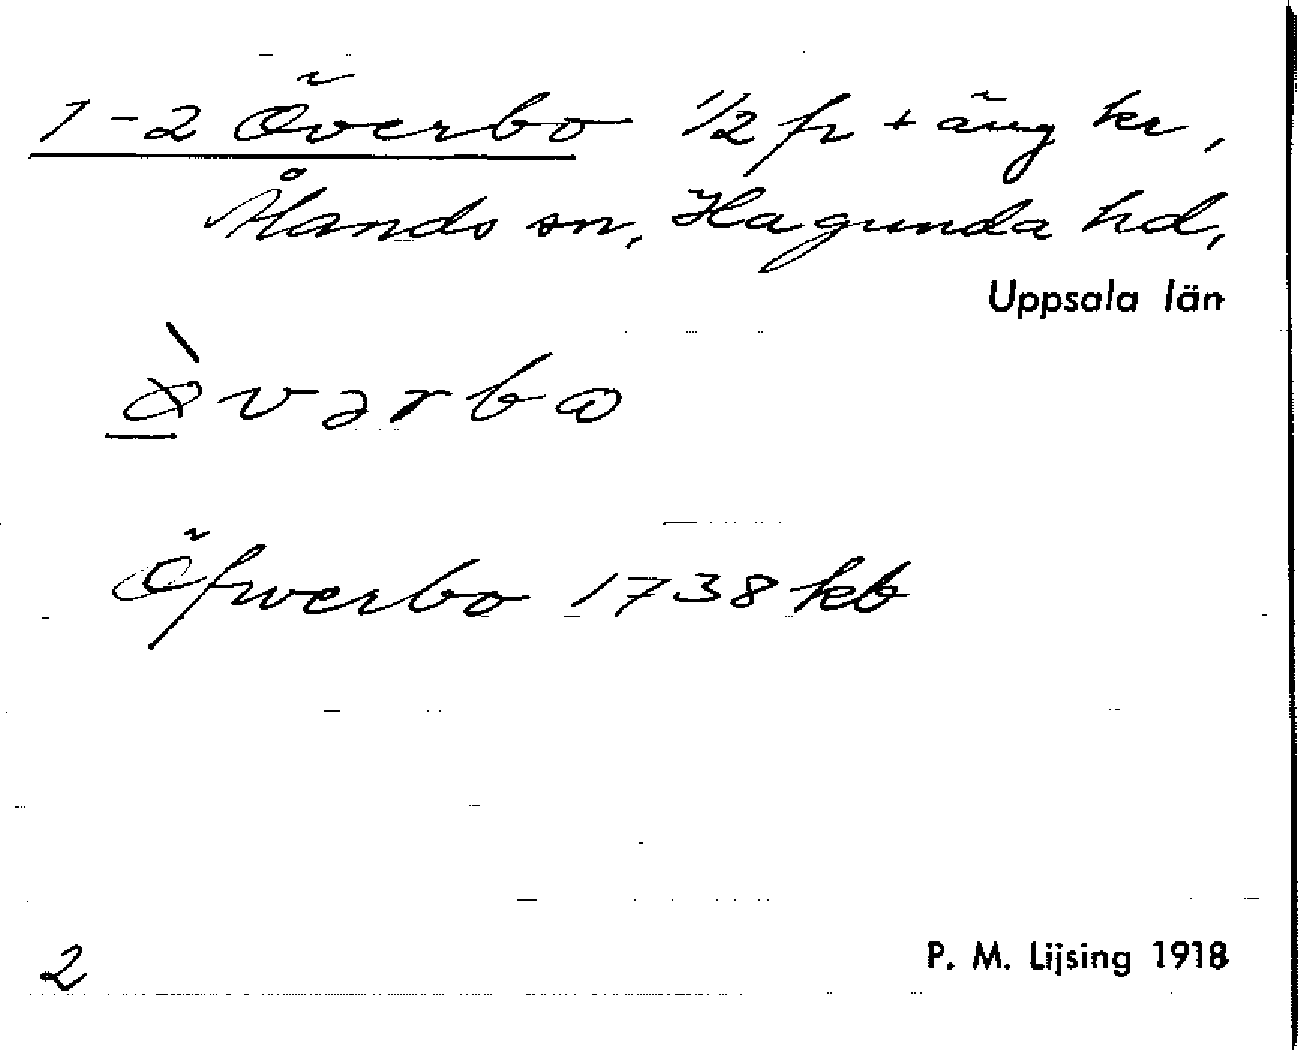 1-2 Överbo 1/2 fr + äng kr,
Ålands sn, Hagunda hd,
Uppsala län
Öfwerbo 1738 kb
2
P. M. Lijsing 1918